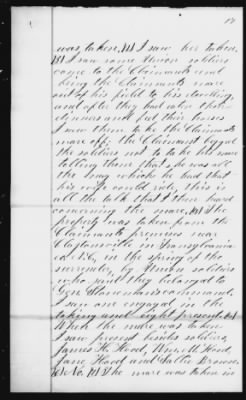 17
was taken, I saw her taken.
I saw some Union soldiers
come to the Claimants and
bring the Claimants mare
out of his field to his dwelling,
and after they had eaten their
dinners and fed their horses
I saw them take the Claimants
mare off; the Claimant begged
the soldiers not to take his mare
telling them that she was all
the nag which he had that
his wife could ride, this is
all the talk that I then heard
concerning the mare, The
property was taken from the
Claimants premises near
Claytonville in Transylvania
Co. N.C, in the spring of the
surrender, by Union soldiers
who said they belonged to
Gen Stoneman's command.
I saw one engaged in the
taking and eight present.
When the mare was taken
I saw present besides soldiers,
James H. Hood, Wm. M. Hood,
Jane Hood and Sallie Brown,
No. The mare was taken in